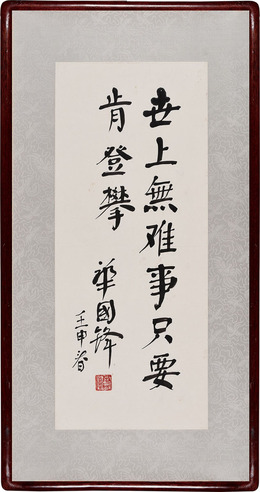 世上無难事只要
肯登攀
華國鋒
壬申春